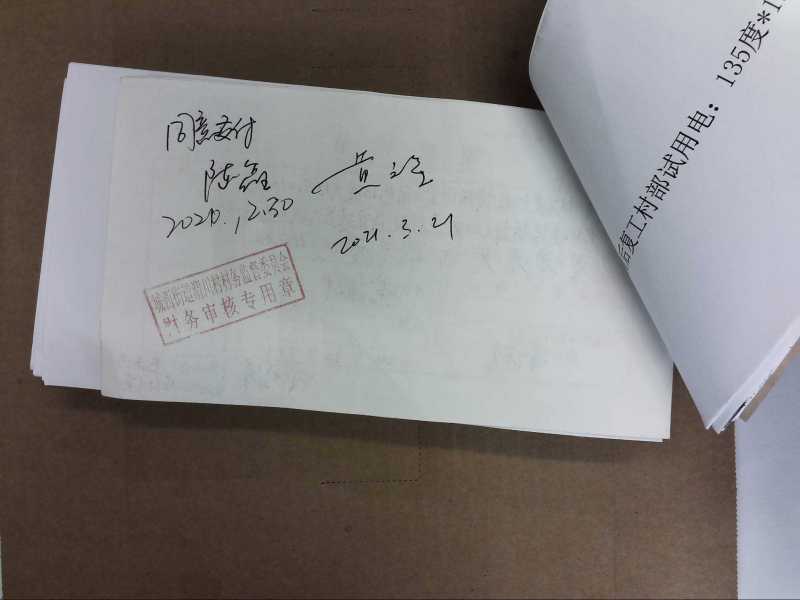 同意支付
陈鑫
2020.12.30
黄
2021.3.21
村村务监督委员会
财务审核专用章
后复工村部试用电：135度*1